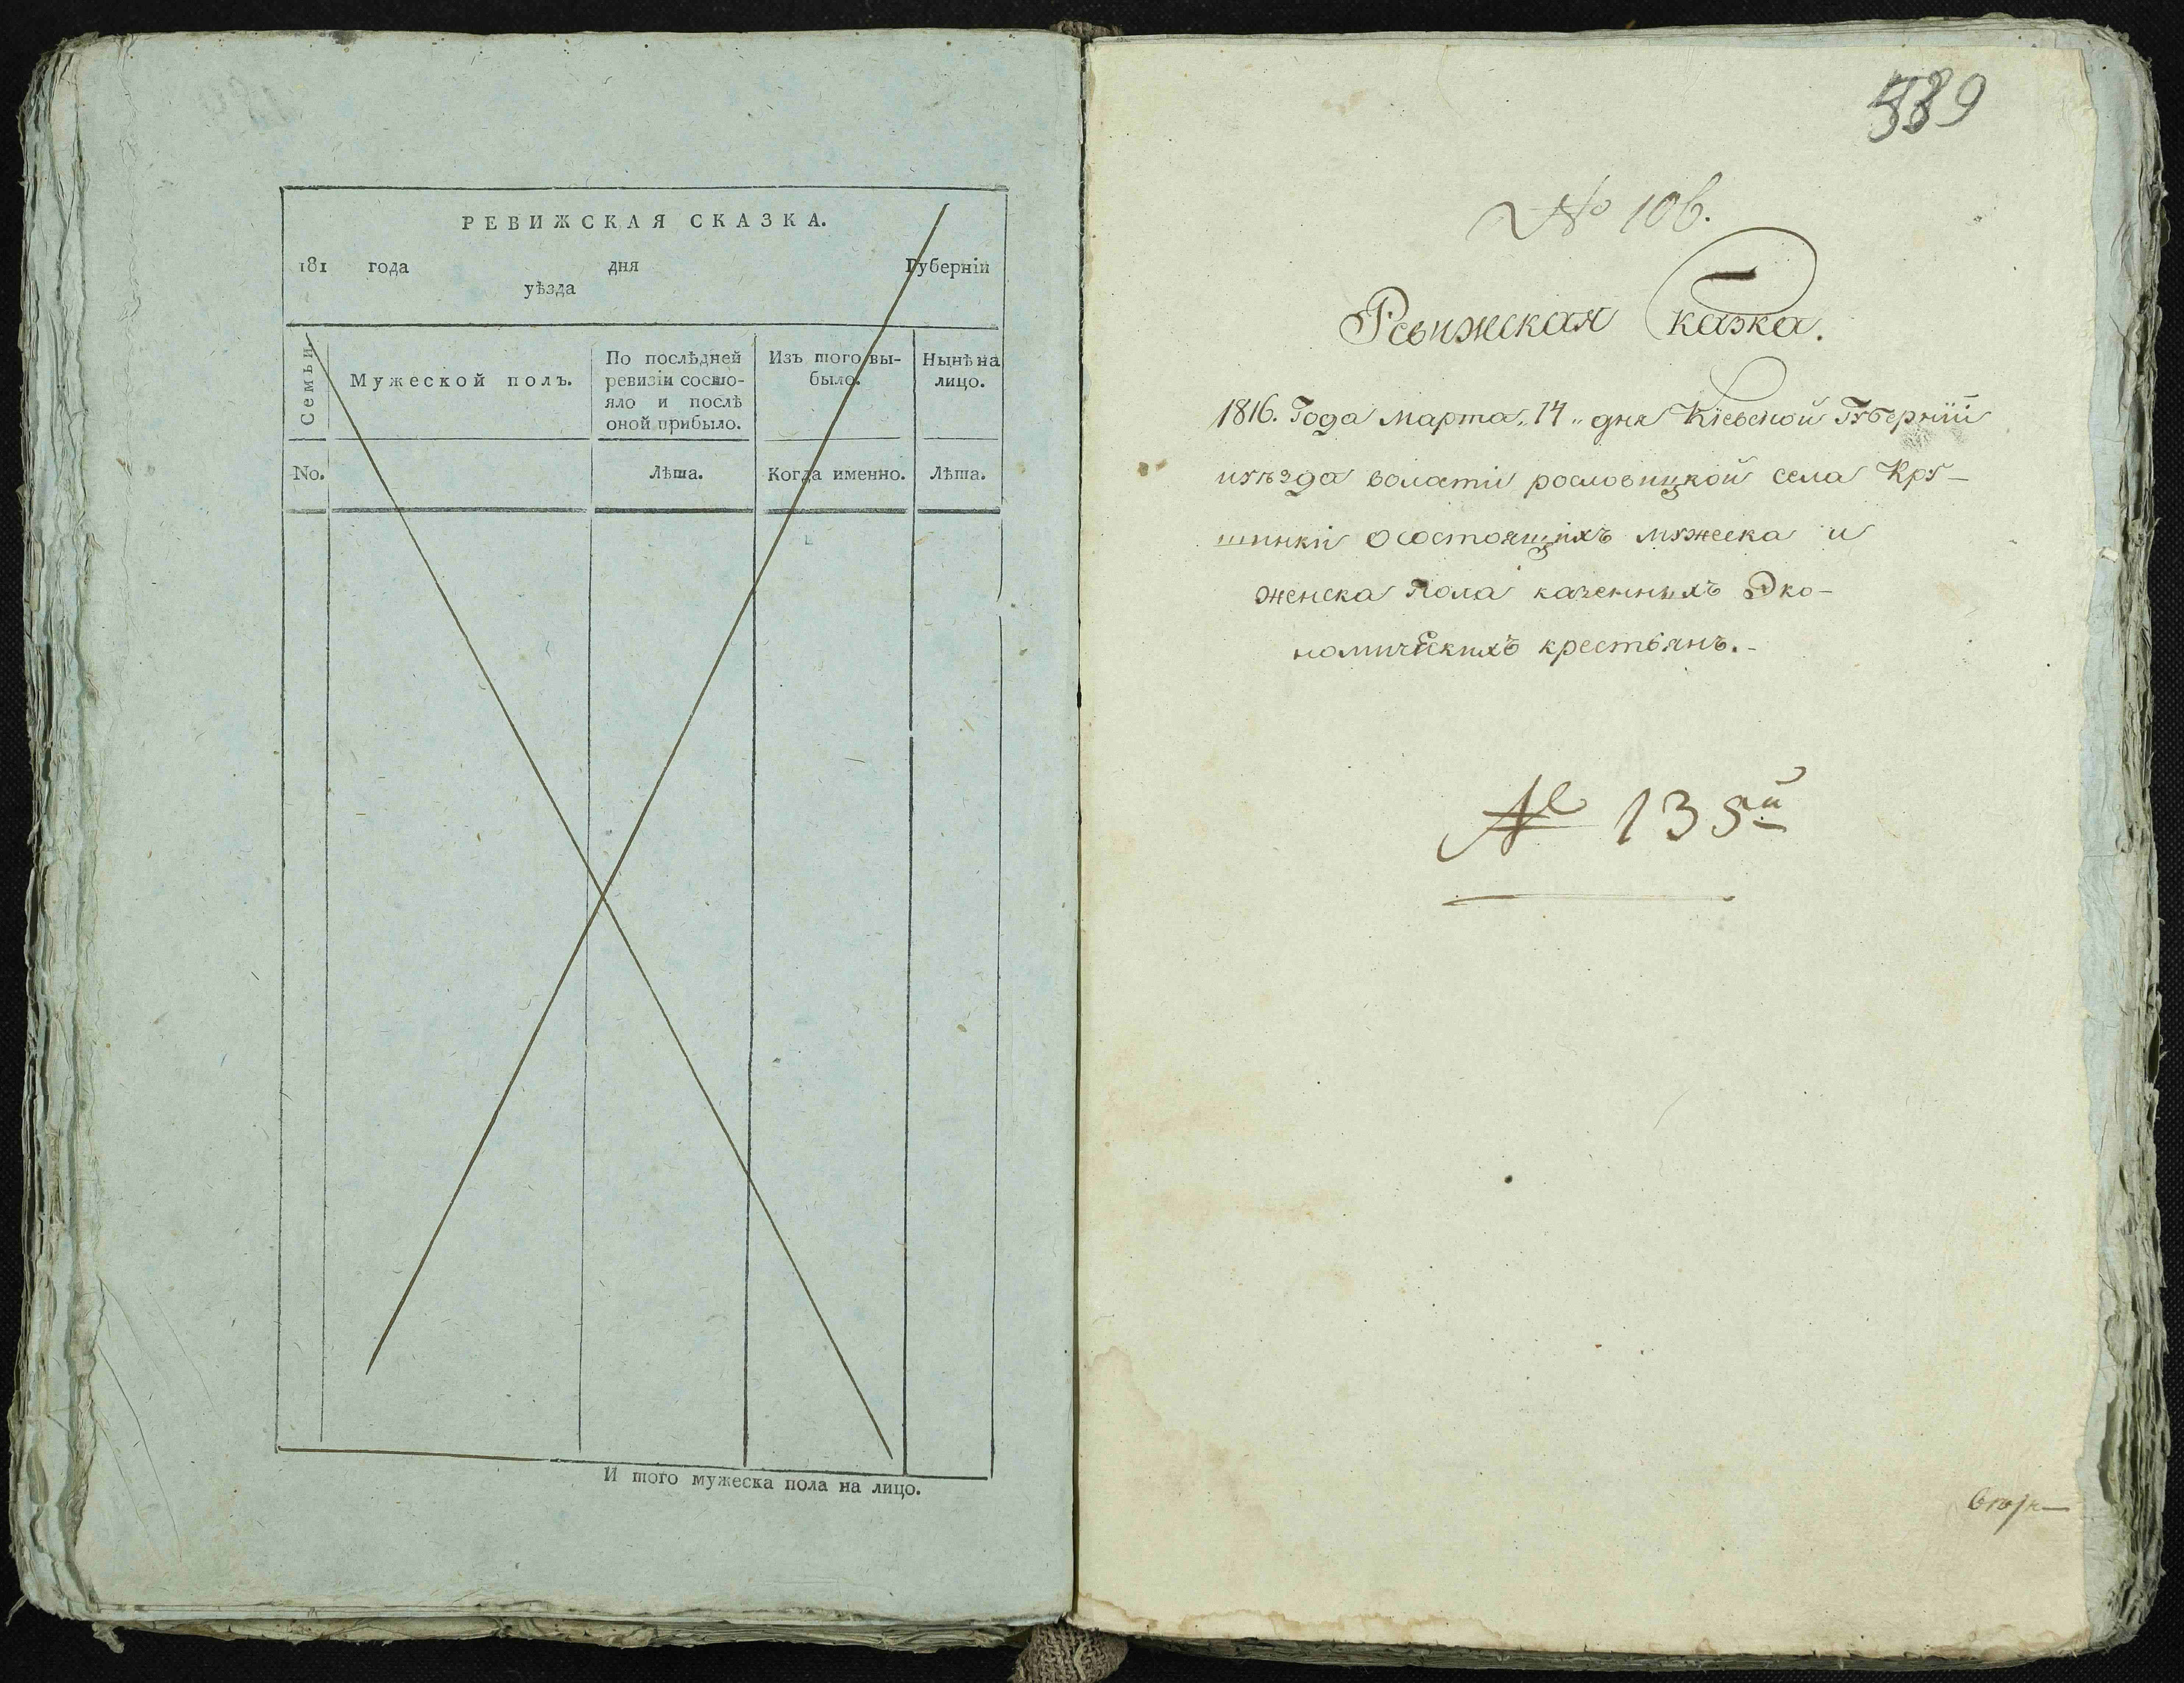 РЕВИЖСКАЯ СКАЗКА.
181 года дня Губерніи
уѣзда
Семьи
Мужеской полъ.
По послѣдней ревизіи состо-
яло и послѣ оной прибыло.
Изъ того вы-
было.
Нынѣ на лицо.
No.
Лѣта.
Когда именно.
Лѣта.
И того мужеска пола на лицо.
589
No 106.
Ревижская Сказка.
1816. Года Марта „14„ дня Кіевской Губерніи
иуѣзда волости рословицкой села Кру-
шинки о состоящихъ мужеска и
женска пола казенныхъ Эко-
номическихъ крестьянъ.-
№ 135й